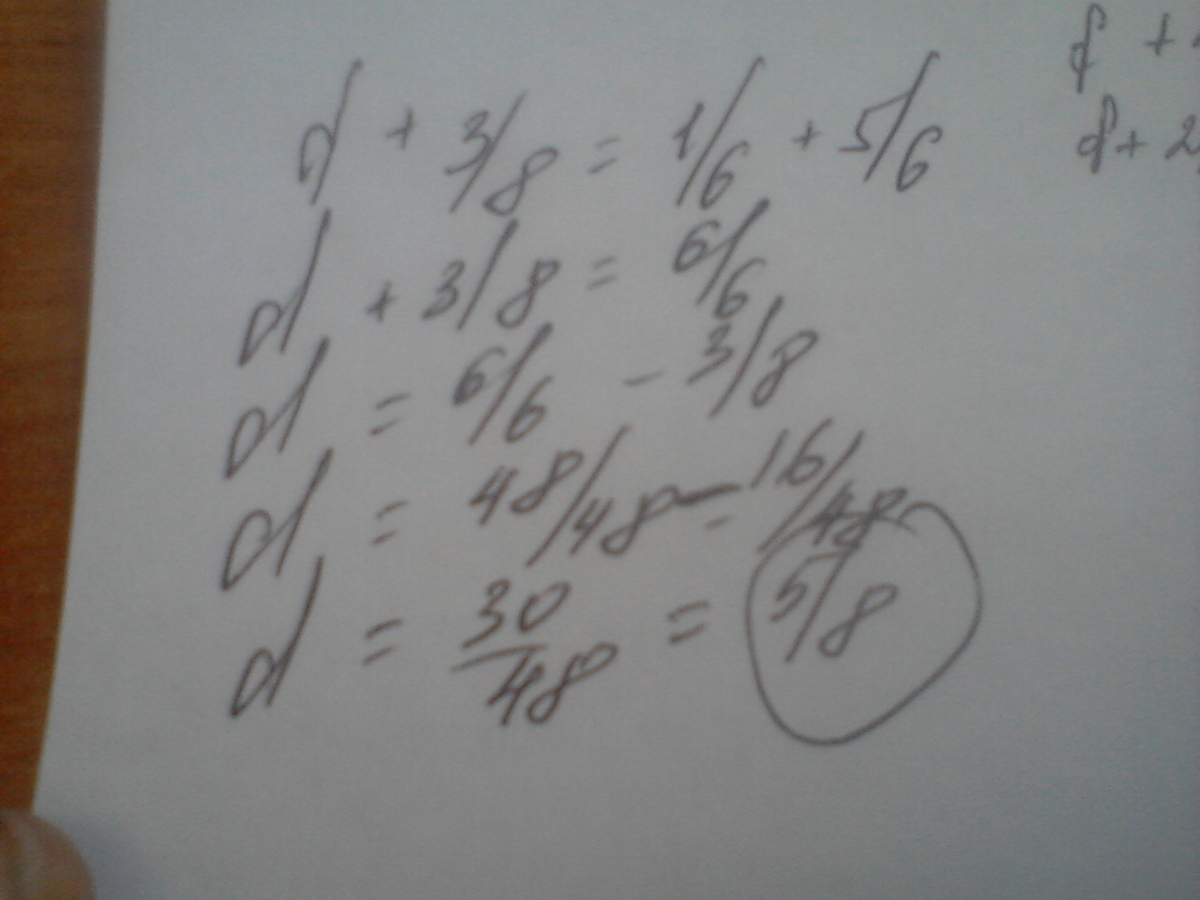 d + 3/8 = 1/6 + 5/6
d + 3/8 = 6/6
d = 6/6 - 3/8
d = 48/48 - 16/48
d = 30/48 = 5/8
f +
f + 2